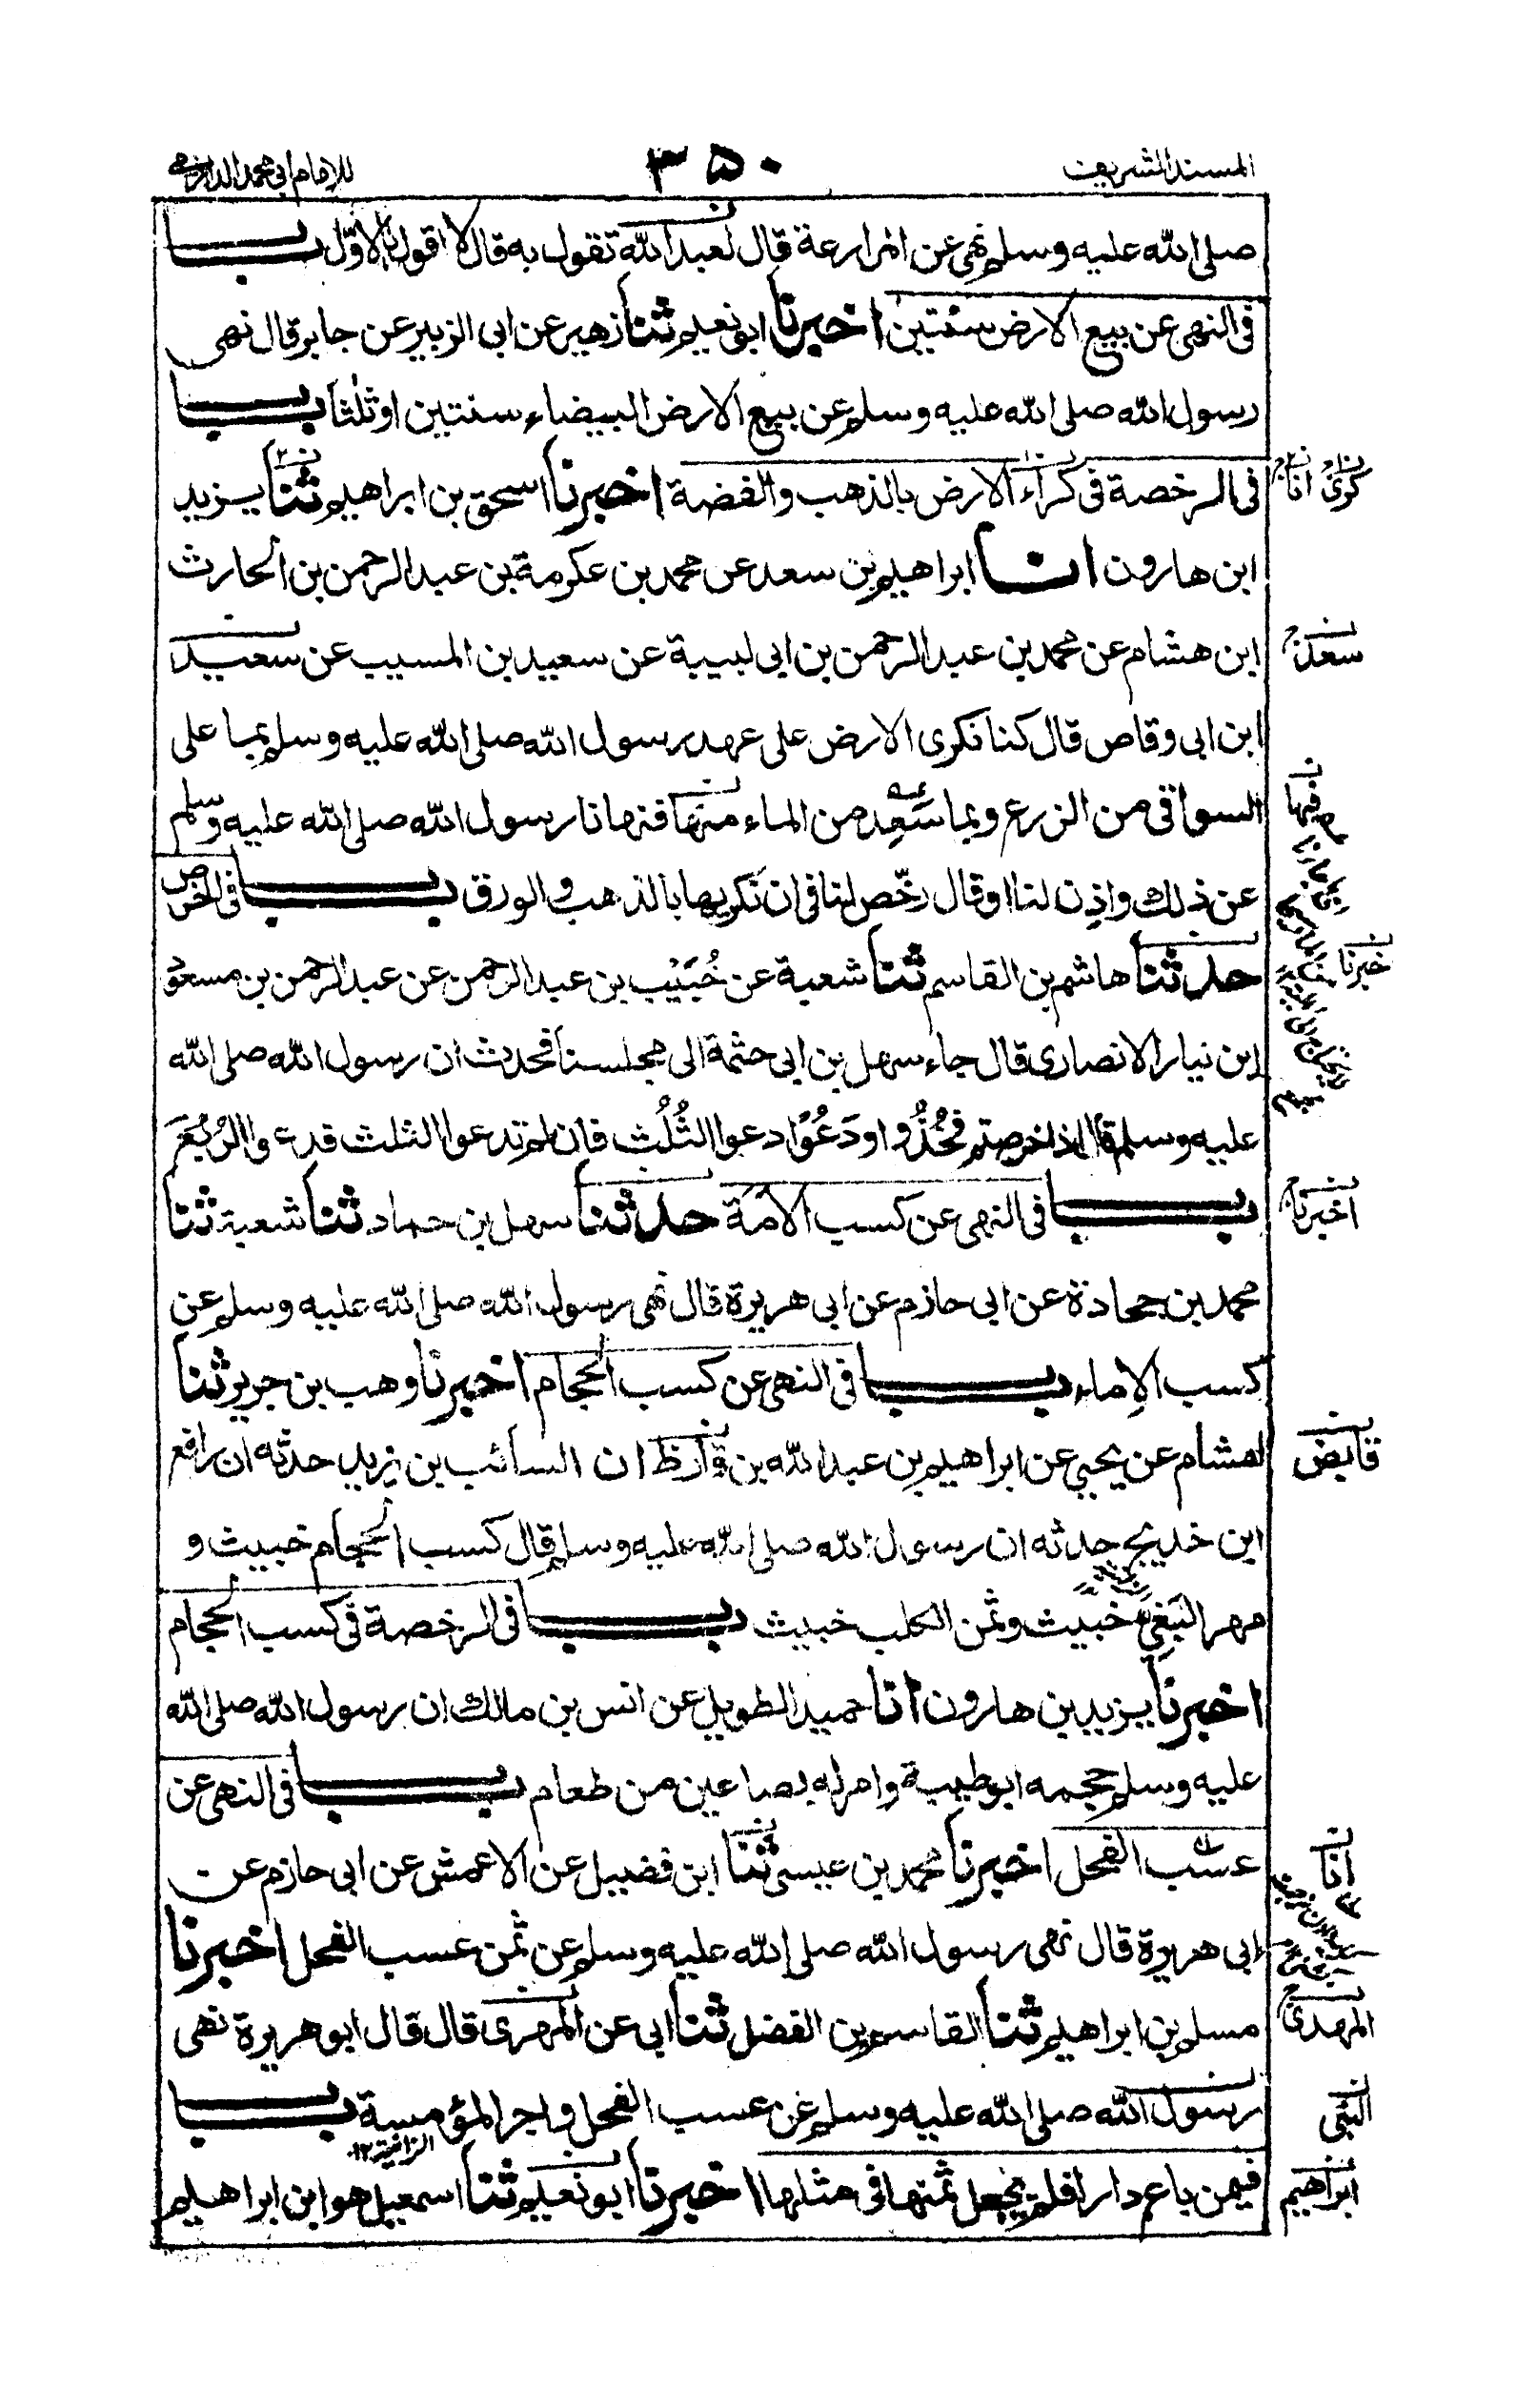 المسند الشريف
٣٥٠
للامام ابي محمد الدارمي
صلى الله عليه وسلم نهى عن المزارعة قال لعبد الله تقول به قال لا اقول بالاول باب
فى النهى عن بيع الارض سنتين اخبرنا ابو نعيم ثنا زهير عن ابى الزبير عن جابر قال نهى
رسول الله صلى الله عليه وسلم عن بيع الارض البيضاء سنتين او ثلثا باب
فى الرخصة فى كراء الارض بالذهب والفضة اخبرنا اسحق بن ابراهيم ثنا يزيد
كرى انا
ابن هارون انا ابراهيم بن سعد عن محمد بن عكرمة بن عبد الرحمن بن الحارث
ابن هشام عن محمد بن عبد الرحمن بن ابى لبيبة عن سعيد بن المسيب عن سعيد
سعد
ابن ابى وقاص قال كنا نكرى الارض على عهد رسول الله صلى الله عليه وسلم بما على
السواقى من الزرع وبما سَعِد من الماء منها فنهانا رسول الله صلى الله عليه وسلم
عن ذلك واذن لنا او قال رخّص لنا فى ان نكريها بالذهب والورق باب فى الخرص
حدثنا هاشم بن القاسم ثنا شعبة عن خُبَيْب بن عبد الرحمن عن عبد الرحمن بن مسعود
خبرنا
ابن نيار الانصارى قال جاء سهل بن ابى حثمة الى مجلسنا فحدث ان رسول الله صلى الله
عليه وسلم قال اذا خرصتم فخُذُوا ودَعُوْا دعوا الثُلُث فان لم تدعوا الثلث فدعوا الرُبُعَ
باب فى النهى عن كسب الأَمَة حدثنا سهل بن حماد ثنا شعبة ثنا
اخبرنا
محمد بن جحادة عن ابى حازم عن ابى هريرة قال نهى رسول الله صلى الله عليه وسلم عن
كسب الاِماء باب فى النهى عن كسب الحجام اخبرنا وهب بن جرير ثنا
هشام عن يحيى عن ابراهيم بن عبد الله بن قارظ ان السائب بن يزيد حدثه ان رافع
قابض
ابن خديج حدثه ان رسول الله صلى الله عليه وسلم قال كسب الحجام خبيث و
مهر البَغِيّ خبيث وثمن الكلب خبيث باب فى الرخصة فى كسب الحجام
اخبرنا يزيد بن هارون انا حميد الطويل عن انس بن مالك ان رسول الله صلى الله
عليه وسلم حجمه ابو طيبة وامر له بصاعين من طعام باب فى النهى عن
عسب الفحل اخبرنا محمد بن عيسى ثنا ابن فضيل عن الاعمش عن ابى حازم عن
انا
ابى هريرة قال نهى رسول الله صلى الله عليه وسلم عن ثمن عسب الفحل اخبرنا
مسلم بن ابراهيم ثنا القاسم بن الفضل ثنا ابى عن المهرى قال قال ابو هريرة نهى
المهدى
رسول الله صلى الله عليه وسلم عن عسب الفحل واجر المؤمسة باب
النبى
الزانية ١٢
فيمن باع دارا فلم يجعل ثمنها فى مثلها اخبرنا ابو نعيم ثنا اسمعيل هو ابن ابراهيم
ابراهيم